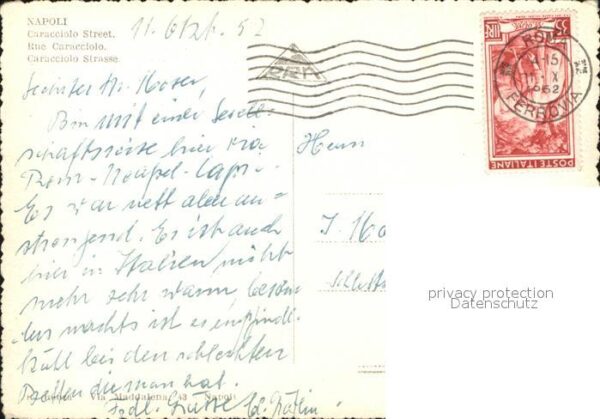 NAPOLI
Caracciolo Street.
Rue Caracciolo.
Caracciolo Strasse.
11. Okt. 52
Geehrter Hr. Moser,
Bin mit einer Gesell-
schaftsreise hier via
Rom-Neapel-Capri.
Es war nett aber an=
strengend. Es ist auch
hier in Italien nicht
mehr sehr warm, beson
ders nachts ist es empfindl.
kühl bei den schlechten
Betten die man hat.
Via Maddalena, 43 Napoli
Frdl. Grüsse
Herrn
J. Mo
Schlett
ROMA
FERROVIA
LIRE 55
POSTE ITALIANE
privacy protection
Datenschutz